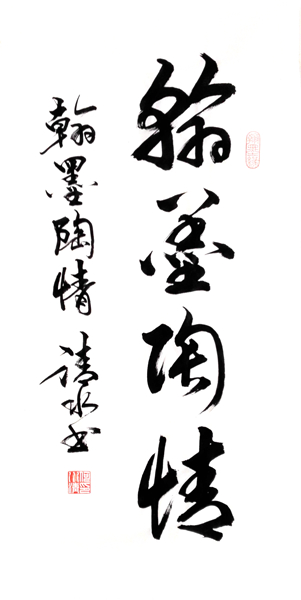 翰墨陶情
翰墨陶情 清水书